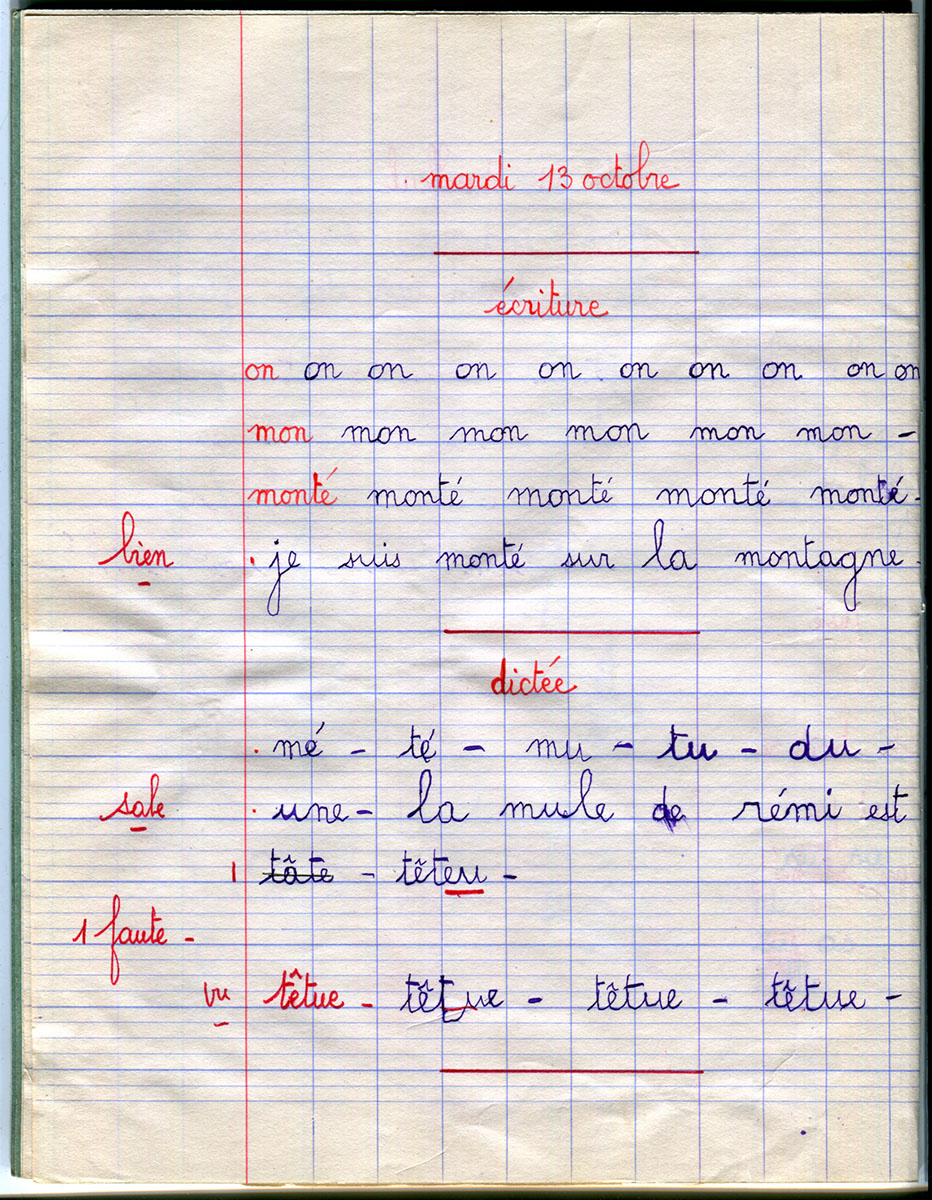 . mardi 13 octobre
écriture
on on on on on on on on on on
mon mon mon mon mon mon -
monté monté monté monté monté.
bien . je suis monté sur la montagne.
dictée
. mé - té - mu - tu - du -
sale . une - la mule de rémi est
1 tâte - têteu -
1 faute -
vu têtue - têtue - têtue - têtue -